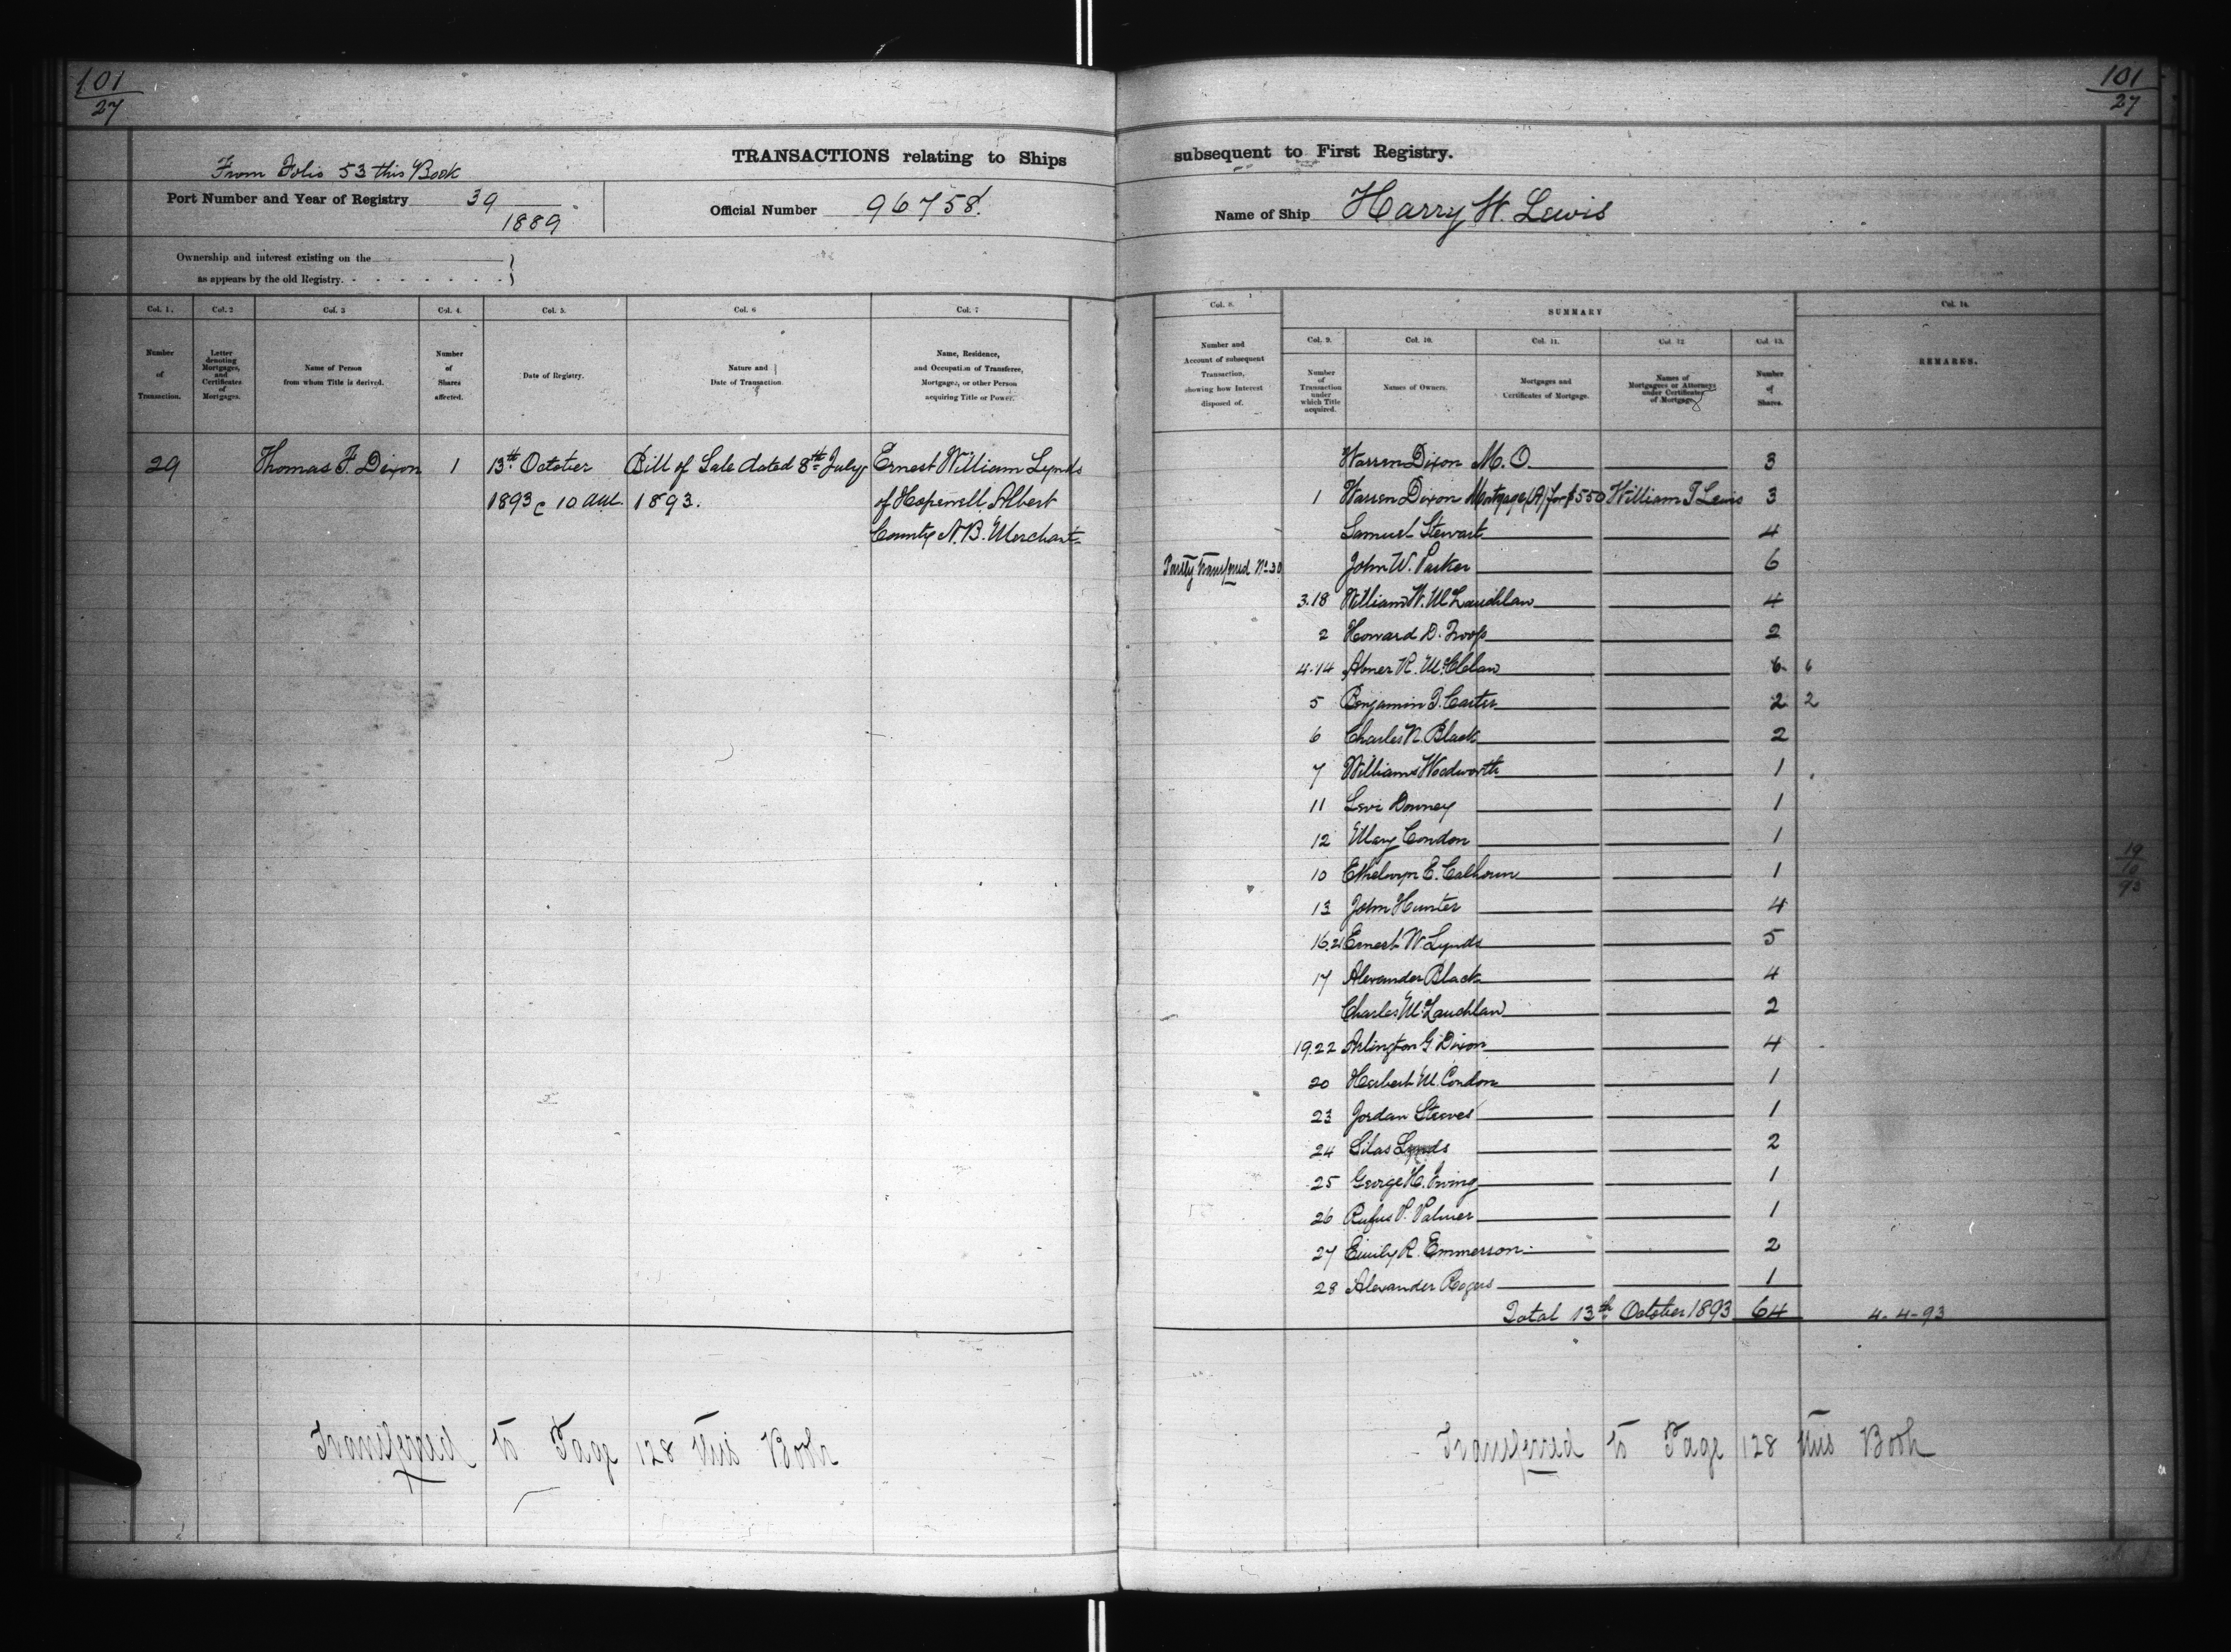 101
27
101
27
TRANSACTIONS relating to Ships subsequent to First Registry.
From Folio 53 this Book
Port Number and Year of Registry 39
1889
Official Number 96758.
Name of Ship Harry W. Lewis
Ownership and interest existing on the
as appears by the old Registry.
Col. 1. Col. 2 Col. 3 Col. 4. Col. 5. Col. 6 Col. 7
Number of Transaction.
Letter denoting Mortgages, and Certificates of Mortgages.
Name of Person from whom Title is derived.
Number of Shares affected.
Date of Registry.
Nature and Date of Transaction.
Name, Residence, and Occupation of Transferee, Mortgagee, or other Person acquiring Title or Power.
29 Thomas F. Dixon 1 13th October Bill of Sale dated 8th July, Ernest William Lynds
1893 @ 10 a.m. 1893. of Hopewell Albert
County N.B. Merchant
Transferred to Page 128 this Book
Col. 8.
Number and Account of subsequent Transaction, showing how Interest disposed of.
SUMMARY
Col. 9. Col. 10. Col. 11. Col. 12 Col. 13. Col. 14.
Number of Transaction under which Title acquired.
Names of Owners.
Mortgages and Certificates of Mortgage.
Names of Mortgagees or Attorneys under Certificates of Mortgage.
Number of Shares.
REMARKS.
Warren Dixon M.O. 3
1 Warren Dixon Mortgage (A) for $550 William T Lewis 3
Samuel Stewart 4
Partly Transferred No 30 John W. Parker 6
3.18 William W. McLauchlan 4
2 Howard D. Troop 2
4.14 Abner R. McClelan 6 6
5 Benjamin T. Carter 2 2
6 Charles N. Black 2
7 William Woodworth 1
11 Levi Downey 1
12 Mary Condon 1
10 Ethelwyn E. Calhoun 1
13 John Hunter 4
16.21 Ernest W. Lynds 5
17 Alexander Black 4
Charles McLauchlan 2
19.22 Arlington G. Dixon 4
20 Herbert M. Condon 1
23 Jordan Steeves 1
24 Silas Lynds 2
25 George H. Irving 1
26 Rufus P. Palmer 1
27 Emily R. Emmerson 2
28 Alexander Rogers 1
Total 13th October 1893 64 4-4-93
19
10
93
Transferred to Page 128 this Book